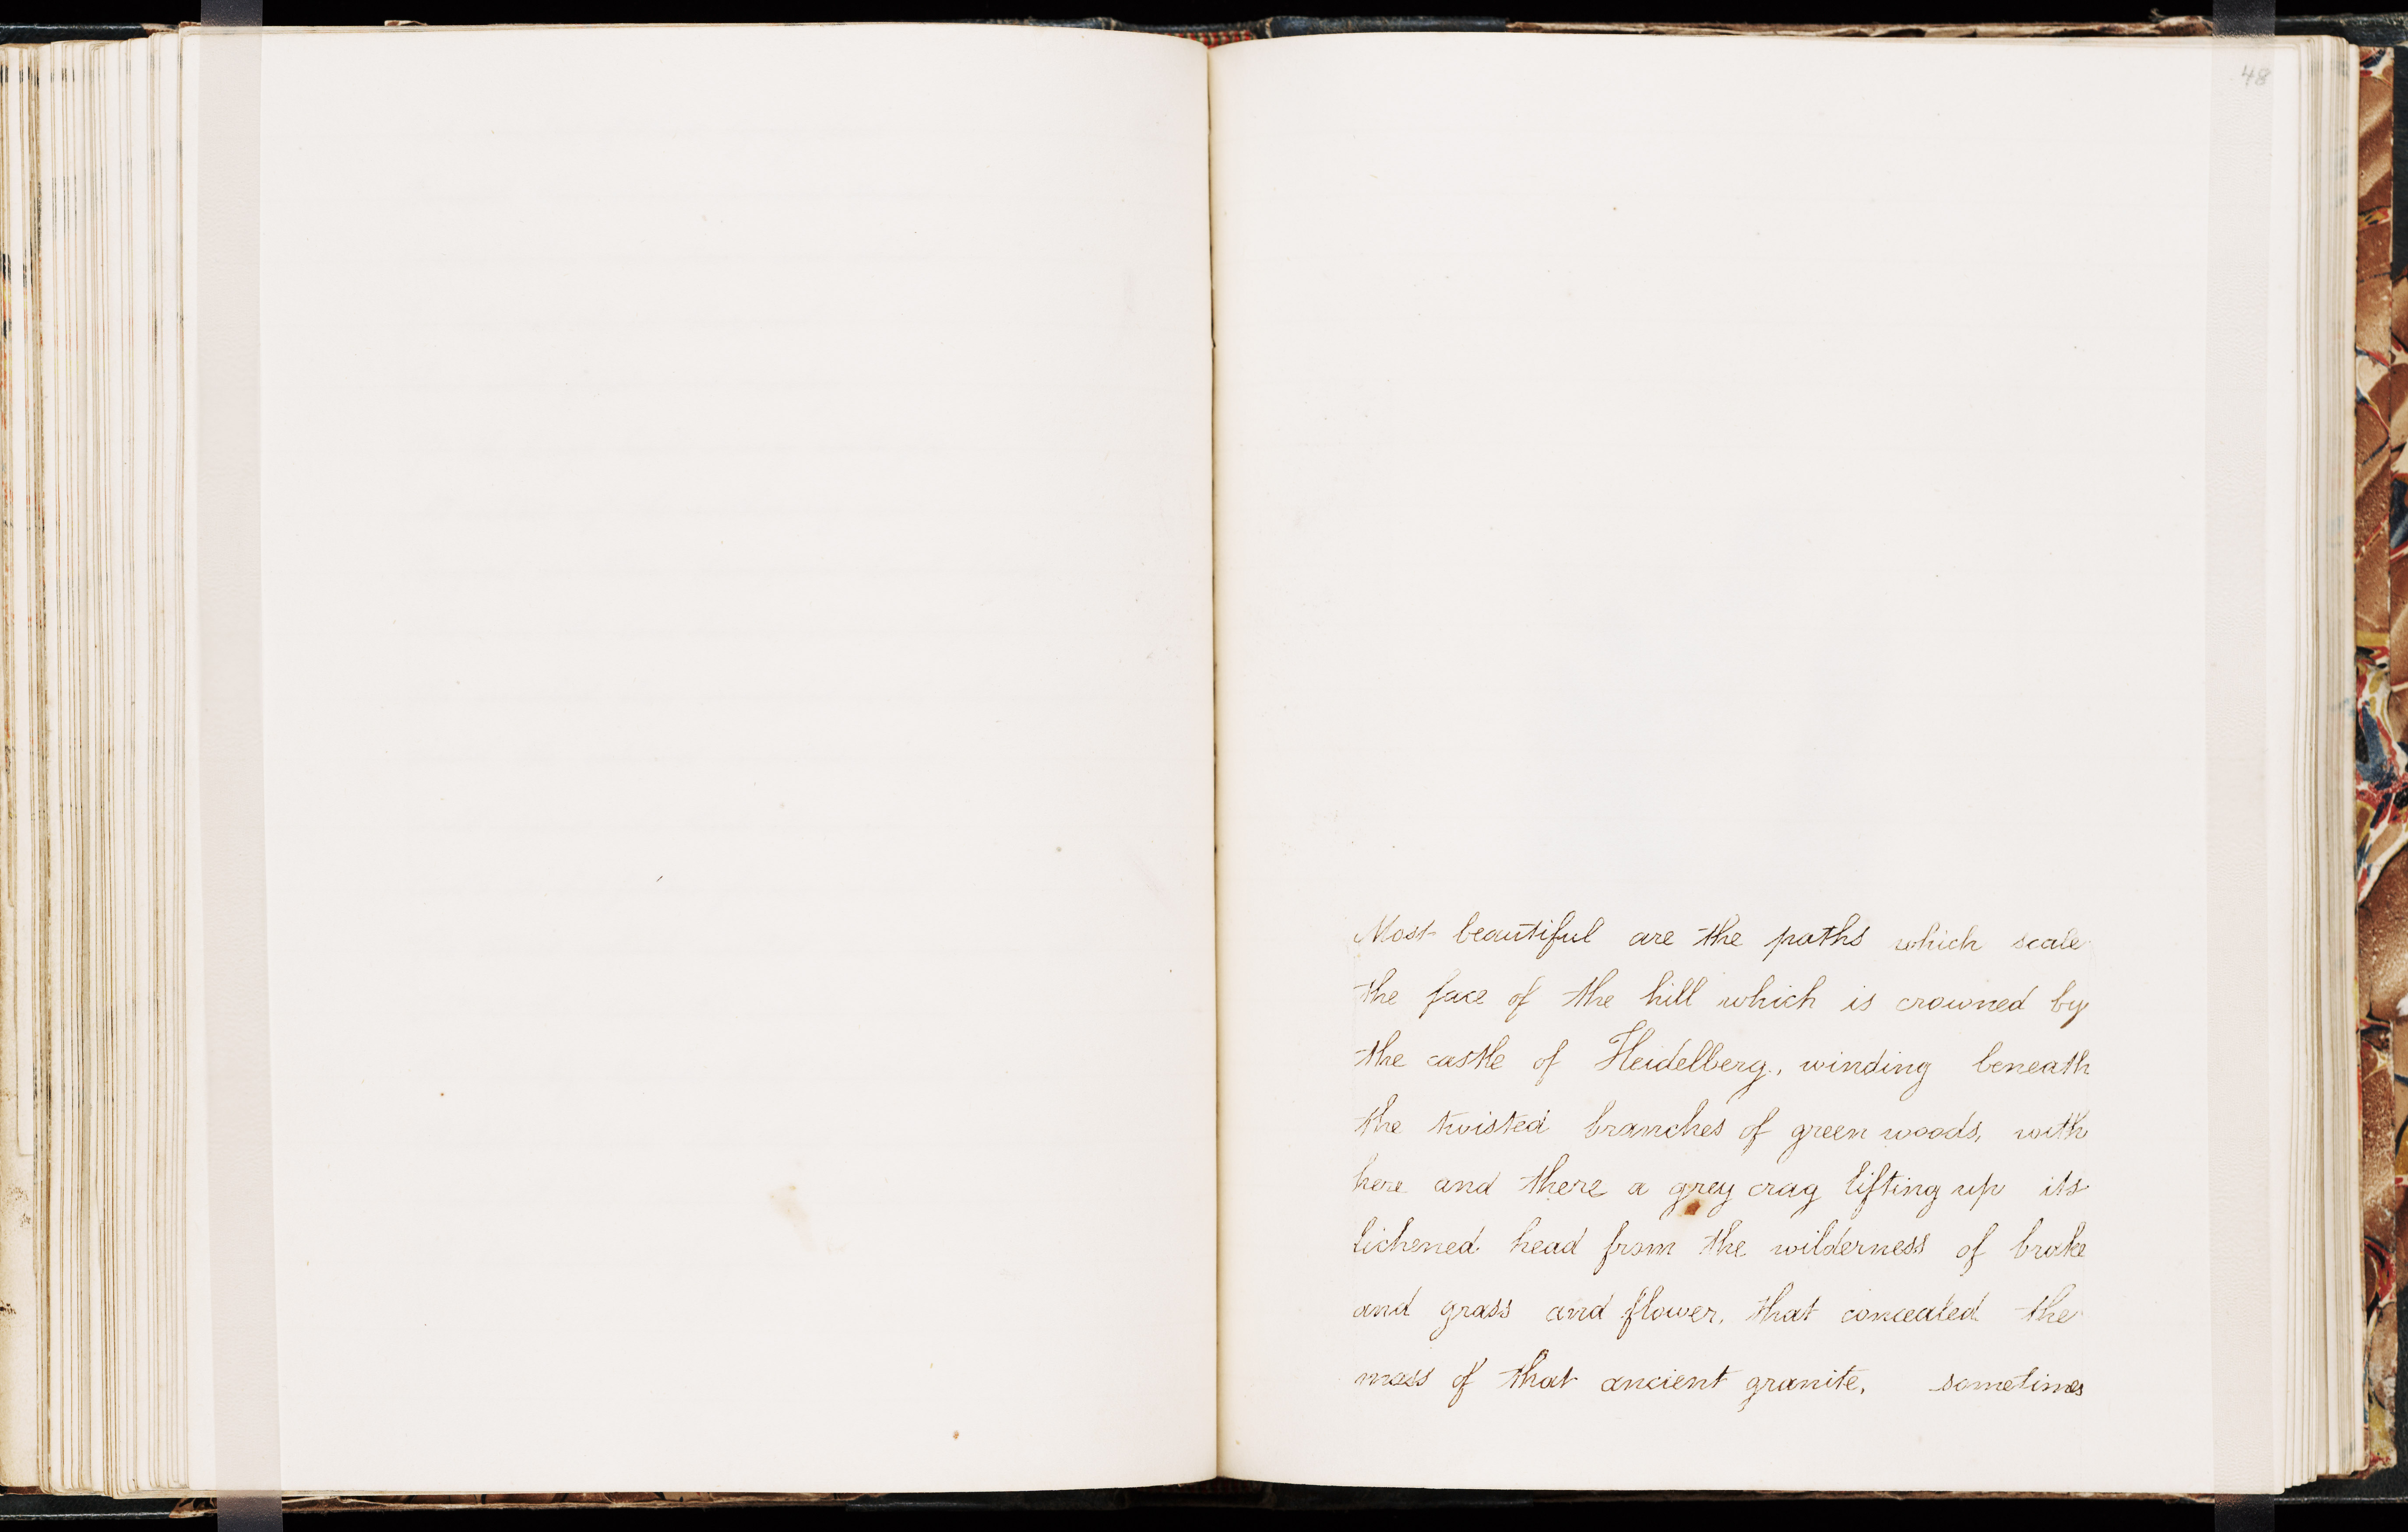 48
Most beautiful are the paths which scale
the face of the hill which is crowned by
the castle of Heidelberg, winding beneath
the twisted branches of green woods, with
here and there a grey crag lifting up its
lichened head from the wilderness of brake
and grass and flower, that concealed the
mass of that ancient granite, sometimes